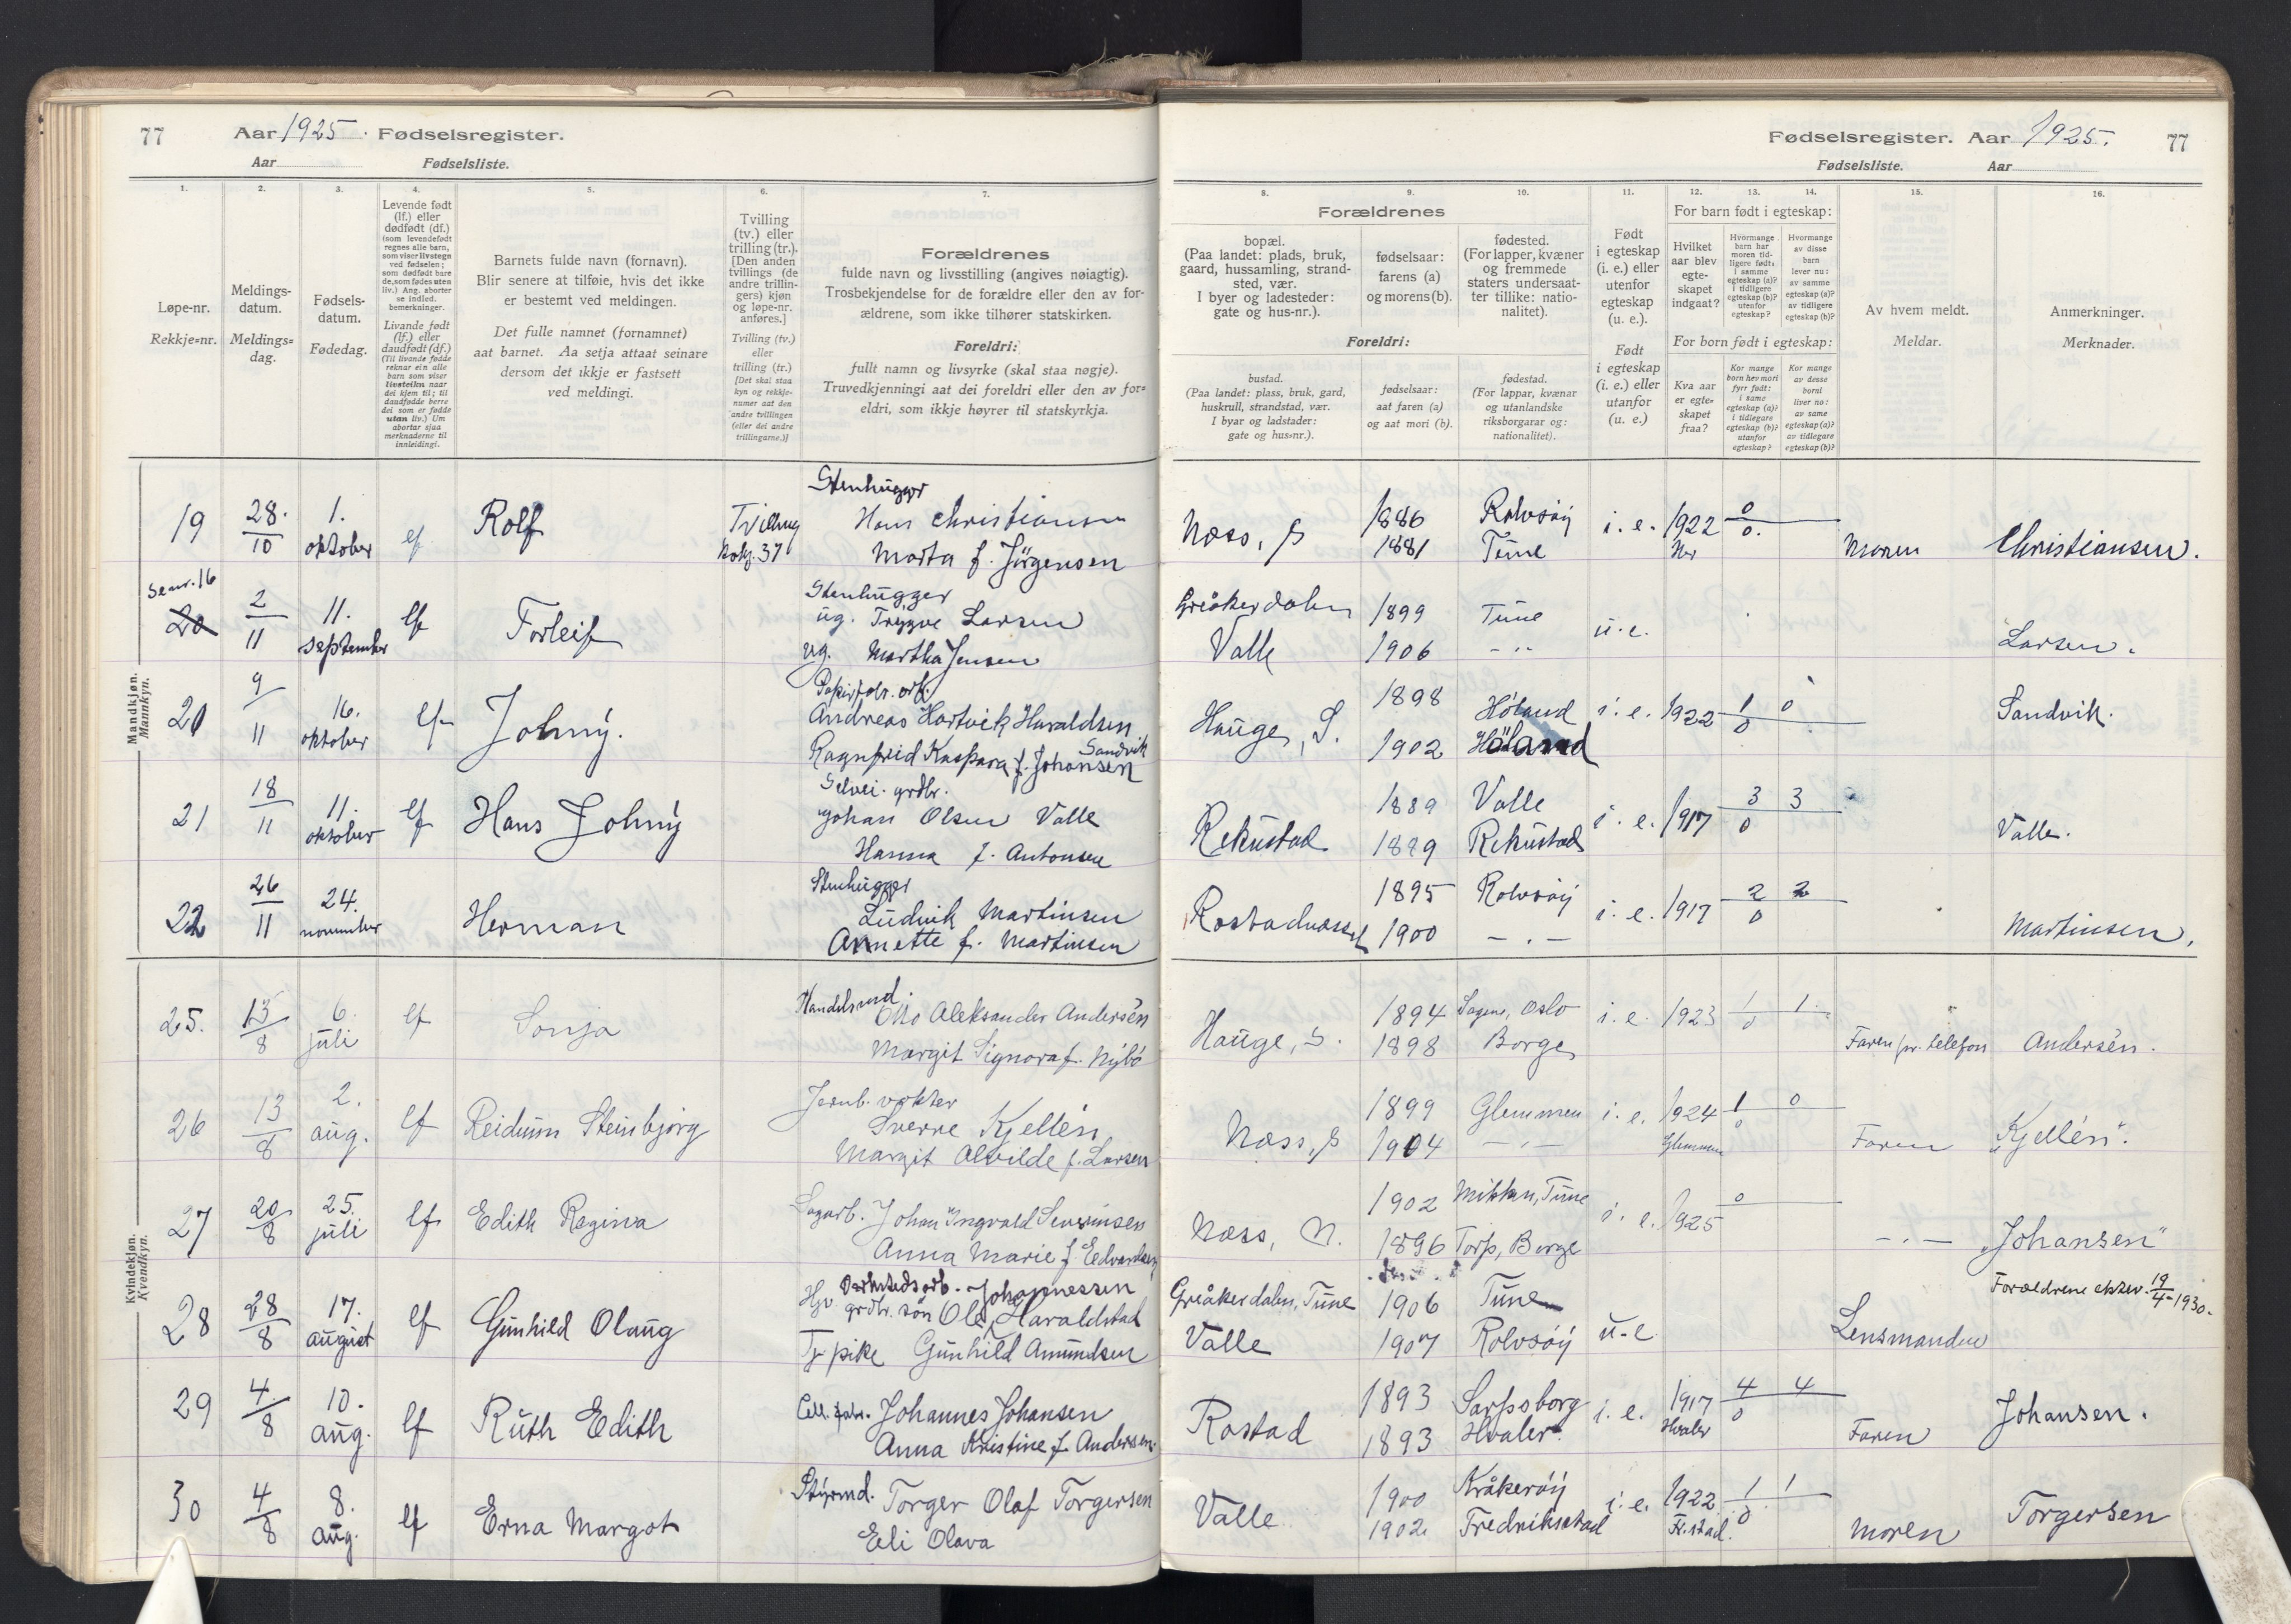 77 Aar 1925. Fødselsregister.
Aar Fødselsliste.
Fødselsregister. Aar 1925. 77
Fødselsliste. Aar
1. 2. 3. 4. 5. 6. 7.
Løpe-nr.
Rekkje=nr.
Meldings-
datum.
Meldings=
dag.
Fødsels-
datum.
Fødedag.
Levende født
(lf.) eller
dødfødt (df.)
(som levendefødt
regnes alle barn,
som viser livstegn
ved fødselen;
som dødfødt bare
de, som fødes uten
liv.) Ang. aborter
se indled.
bemerkninger.
Livande født
(lf.) eller
daudfødt (df.)
(Til livande fødde
reknar ein alle
barn som viser
livsteikn naar
dei kjem til; til
daudfødde berre
dei som er fødde
utan liv.) Um
abortar sjaa
merknaderne til
innleidingi.
Barnets fulde navn (fornavn).
Blir senere at tilføie, hvis det ikke
er bestemt ved meldingen.
Det fulle namnet (fornamnet)
aat barnet. Aa setja attaat seinare
dersom det ikkje er fastsett
ved meldingi.
Tvilling
(tv.) eller
trilling (tr.).
[Den anden
tvillings (de
andre trillin-
gers) kjøn
og løpe-nr.
anføres.]
Tvilling (tv.)
eller
trilling (tr.)
[Det skal staa
kyn og rekkje-
numer aat den
andre tvillingen
(eller dei andre
trillingarne.)]
Forældrenes
fulde navn og livsstilling (angives nøiagtig).
Trosbekjendelse for de forældre eller den av for-
ældrene, som ikke tilhører statskirken.
Foreldri:
fullt namn og livsyrke (skal staa nøgje).
Truvedkjenningi aat dei foreldri eller den av for=
eldri, som ikkje høyrer til statskyrkja.
8. 9. 10. 11. 12. 13. 14. 15. 16.
Forældrenes
bopæl.
(Paa landet: plads, bruk,
gaard, hussamling, strand-
sted, vær.
I byer og ladesteder:
gate og hus-nr.).
fødselsaar:
farens (a)
og morens (b).
fødested.
(For lapper, kvæner
og fremmede
staters undersaat-
ter tillike: natio-
nalitet).
Foreldri:
bustad.
(Paa landet: plass, bruk, gard,
huskrull, strandstad, vær.
I byar og ladstader:
gate og hus=nr.).
fødselsaar:
aat faren (a)
og aat mori (b).
fødestad.
(For lappar, kvænar
og utanlandske
riksborgarar og:
nationalitet).
Født
i egteskap
(i. e.) eller
utenfor
egteskap
(u. e.).
Født
i egteskap
(i. e.) eller
utanfor
(u. e.)
For barn født i egteskap:
Hvilket
aar blev
egte-
skapet
indgaat?
Hvormange
barn har
moren tid-
ligere født:
i samme
egteskap (a)?
i tidligere
egteskap (b)?
utenfor
egteskap?
Hvormange
av disse
barn
lever nu:
av samme
egteskap (a)?
av tidligere
egteskap (b)?
For born født i egteskap:
Kva aar
er egte=
skapet
fraa?
Kor mange
born hev mori
fyrr født:
i same
egteskap (a)?
i tidlegare
egteskap (b)?
utanfor
egteskap?
Kor mange
av desse
borni
liver no:
av same
egteskap (a)?
av tidlegare
egteskap (b)?
Av hvem meldt.
Meldar.
Anmerkninger.
Merknader.
Mandkjøn.
Mannkyn.
Stenhugger
19 28/10 1. oktober lf Rolf Tvilling Hans Christiansen
Marta f. Jørgensen
Næss, S 1886 Rolvsøy i. e. 1922 0/0.
1881 Tune Moren Christiansen.
Se nr. 16
20 2/11 11. september lf Torleif
Stenhugger
ug. Trygve Larsen
ug. Martha Jensen
Greåkerdalen 1899 Tune u. e.
Valle 1906 - " - Larsen.
20 9/11 16. oktober lf Johny.
Papirfabr. arb.
Andreas Hartvik Haraldsen
Sandvik
Ragnfrid Kaspara f. Johansen
Hauge, S. 1898 Høland i. e. 1922 1/0 0 Sandvik.
1902 Høland
21 18/11 11. oktober lf Hans Johny
Selvei. grdbr.
Johan Olsen Valle
Hanna f. Antonsen
Rekustad 1889 Valle i. e. 1917 3/0 3 Valle.
1889 Rekustad
22 26/11 24. november Herman
Stenhugger
Ludvik Martinsen
Annette f. Martinsen
1895 Rolvsøy i. e. 1917 2/0 2
1900 - . - Martinsen.
Kvindekjøn.
Kvendkyn.
25. 13/8 6. juli lf Sonja
Handelsmd.
Otto Aleksander Andersén
Margit Signora f. Nybö
Hauge, S. 1894 Sagene, Oslo i. e. 1923 1/0 1.
1898 Borge Faren pr. telefon Andersén.
26 13/8 2. aug. lf Reidun Steinbjørg
Jernb. vokter
Sverre Kjellén
Margit Alvilde f. Larsen
Næss, S 1899 Glemmen i. e. 1924 1/0 0
1904 - " - Glemmen Faren "Kjellén".
27 20/8 25. juli lf Edith Regina
Sagarb. Johan Ingvald Severinsen
Anna Marie f. Edvardsen
Næss, N. 1902 Tune i. e. 1925 0
1896 Torp, Borge - . - "Johansen"
28 28/8 17. august lf Gunhild Olaug
Verkstedsarb. Johannessen
grdbr. søn Ole Haraldstad
Tj. pike Gunhild Amundsen
Greåkerdalen, Tune 1906 Tune u-e
Valle 1907 Rolvsøy Lensmanden
Forældrene ektev. 19/4-1930.
29 4/8 10. aug. lf Ruth Edith
Cell. fabr. Johannes Johansen
Anna Kristine f. Andersen.
Rostad 1893 Sarpsborg i. e. 1917 4/0 4
1893 Hvaler. Hvaler Faren Johansen.
30 4/8 8. aug. lf Erna Margot
Styrmd. Torger Olaf Torgersen
Eli Olava
Valle 1900 Kråkerøy i. e. 1922 1/0 1
1902 Fredrikstad Fr.stad. Moren Torgersen